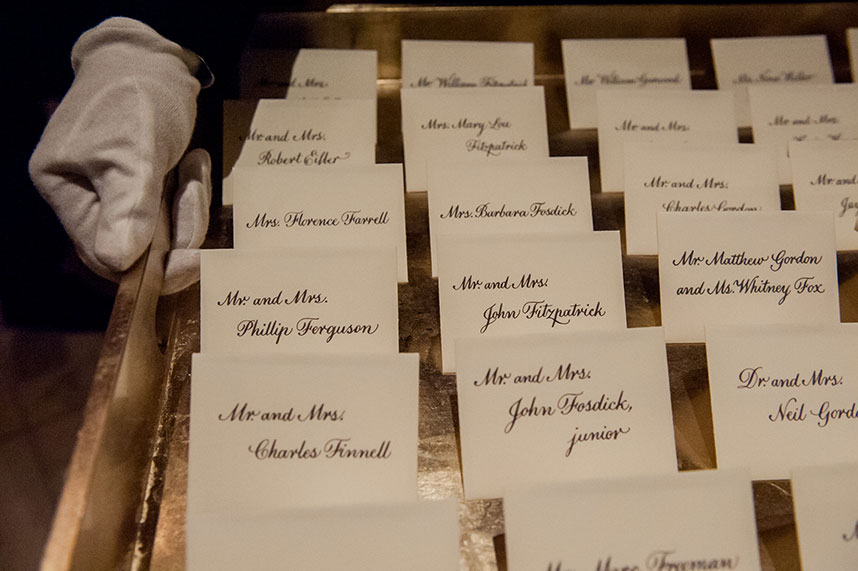 Mr. and Mrs.
Mr. and Mrs.
Robert Eifler
Mrs. Florence Farrell
Mr. and Mrs.
Phillip Ferguson
Mr. and Mrs.
Charles Finnell
Mr. William Fitzpatrick
Mrs. Mary Lou
Fitzpatrick
Mrs. Barbara Fosdick
Mr. and Mrs.
John Fitzpatrick
Mr. and Mrs.
John Fosdick,
junior
Freeman
Mr. William
Mr. and Mrs.
Mr. and Mrs.
Charles Gordon
Mr. Matthew Gordon
and Ms. Whitney Fox
Dr. and Mrs.
Neil Gordo
Mr. and Mrs.
Mr. and